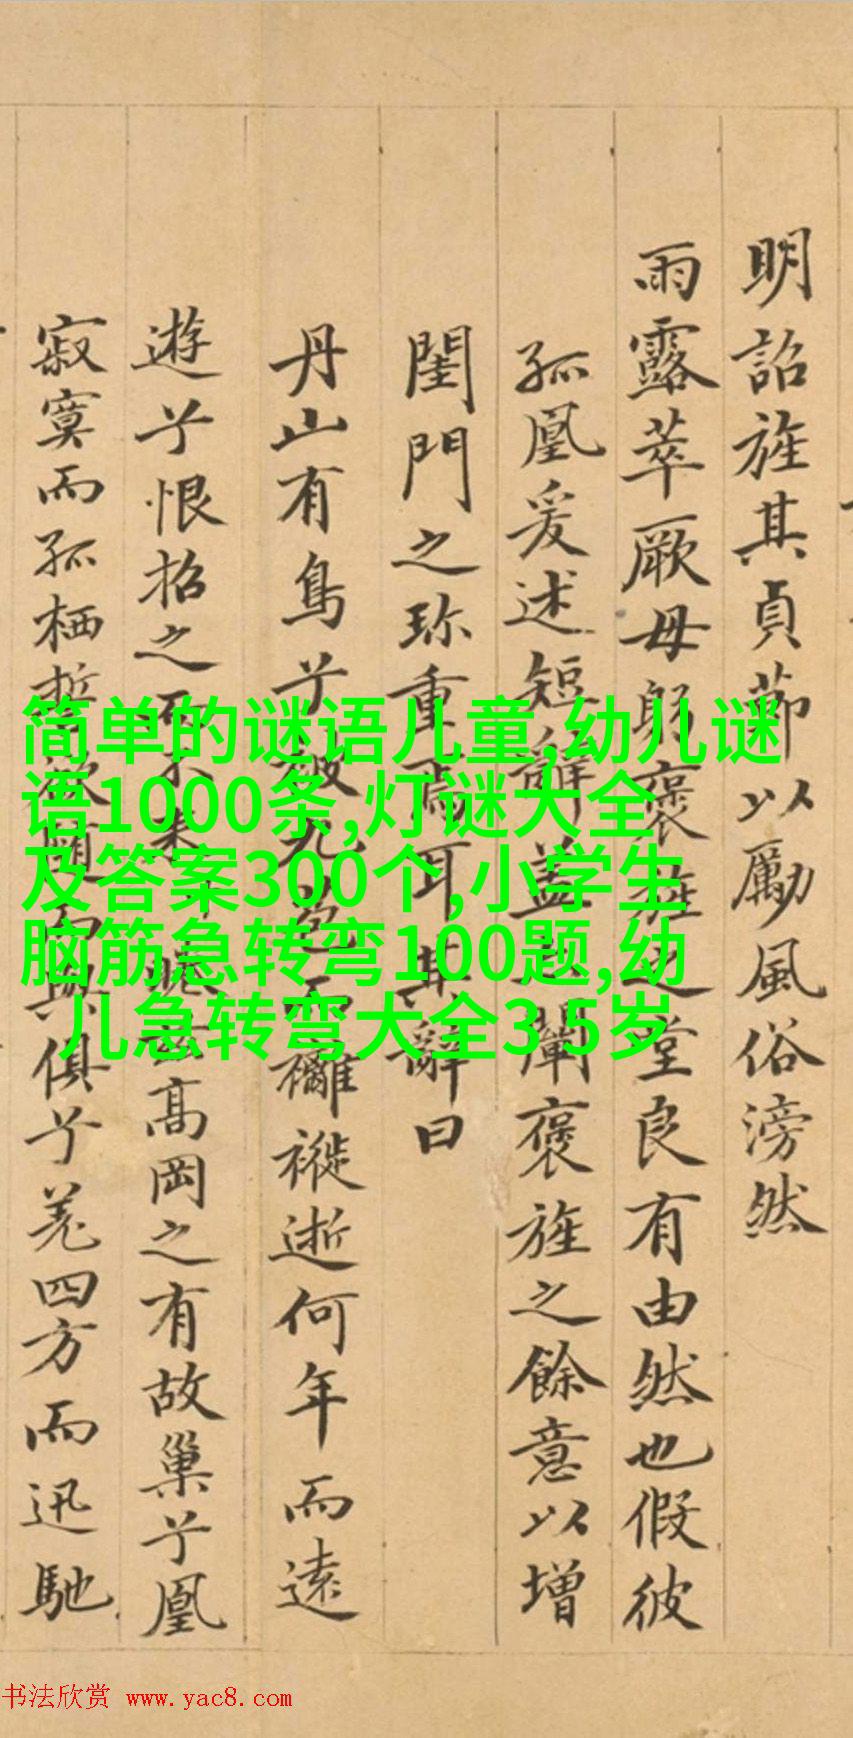 明詔旌其貞節以勵風俗滂然
雨露萃厥母躬褒旌之堂良有由然也假彼
孤凰爰述短辭盖闡褒旌之餘意以增
閨門之珎重焉耳其辭曰
丹山有鳥兮被九苞而襳褷逝何年而遠
遊兮恨招之而不来兮高岡之有故巢兮凰
寂寞而孤栖誓欲随而與俱兮羌四方而迅馳
简单的谜语儿童,幼儿谜
语1000条,灯谜大全
及答案300个,小学生
脑筋急转弯100题,幼
儿急转弯大全3.5岁
书法欣赏 www.yac8.com